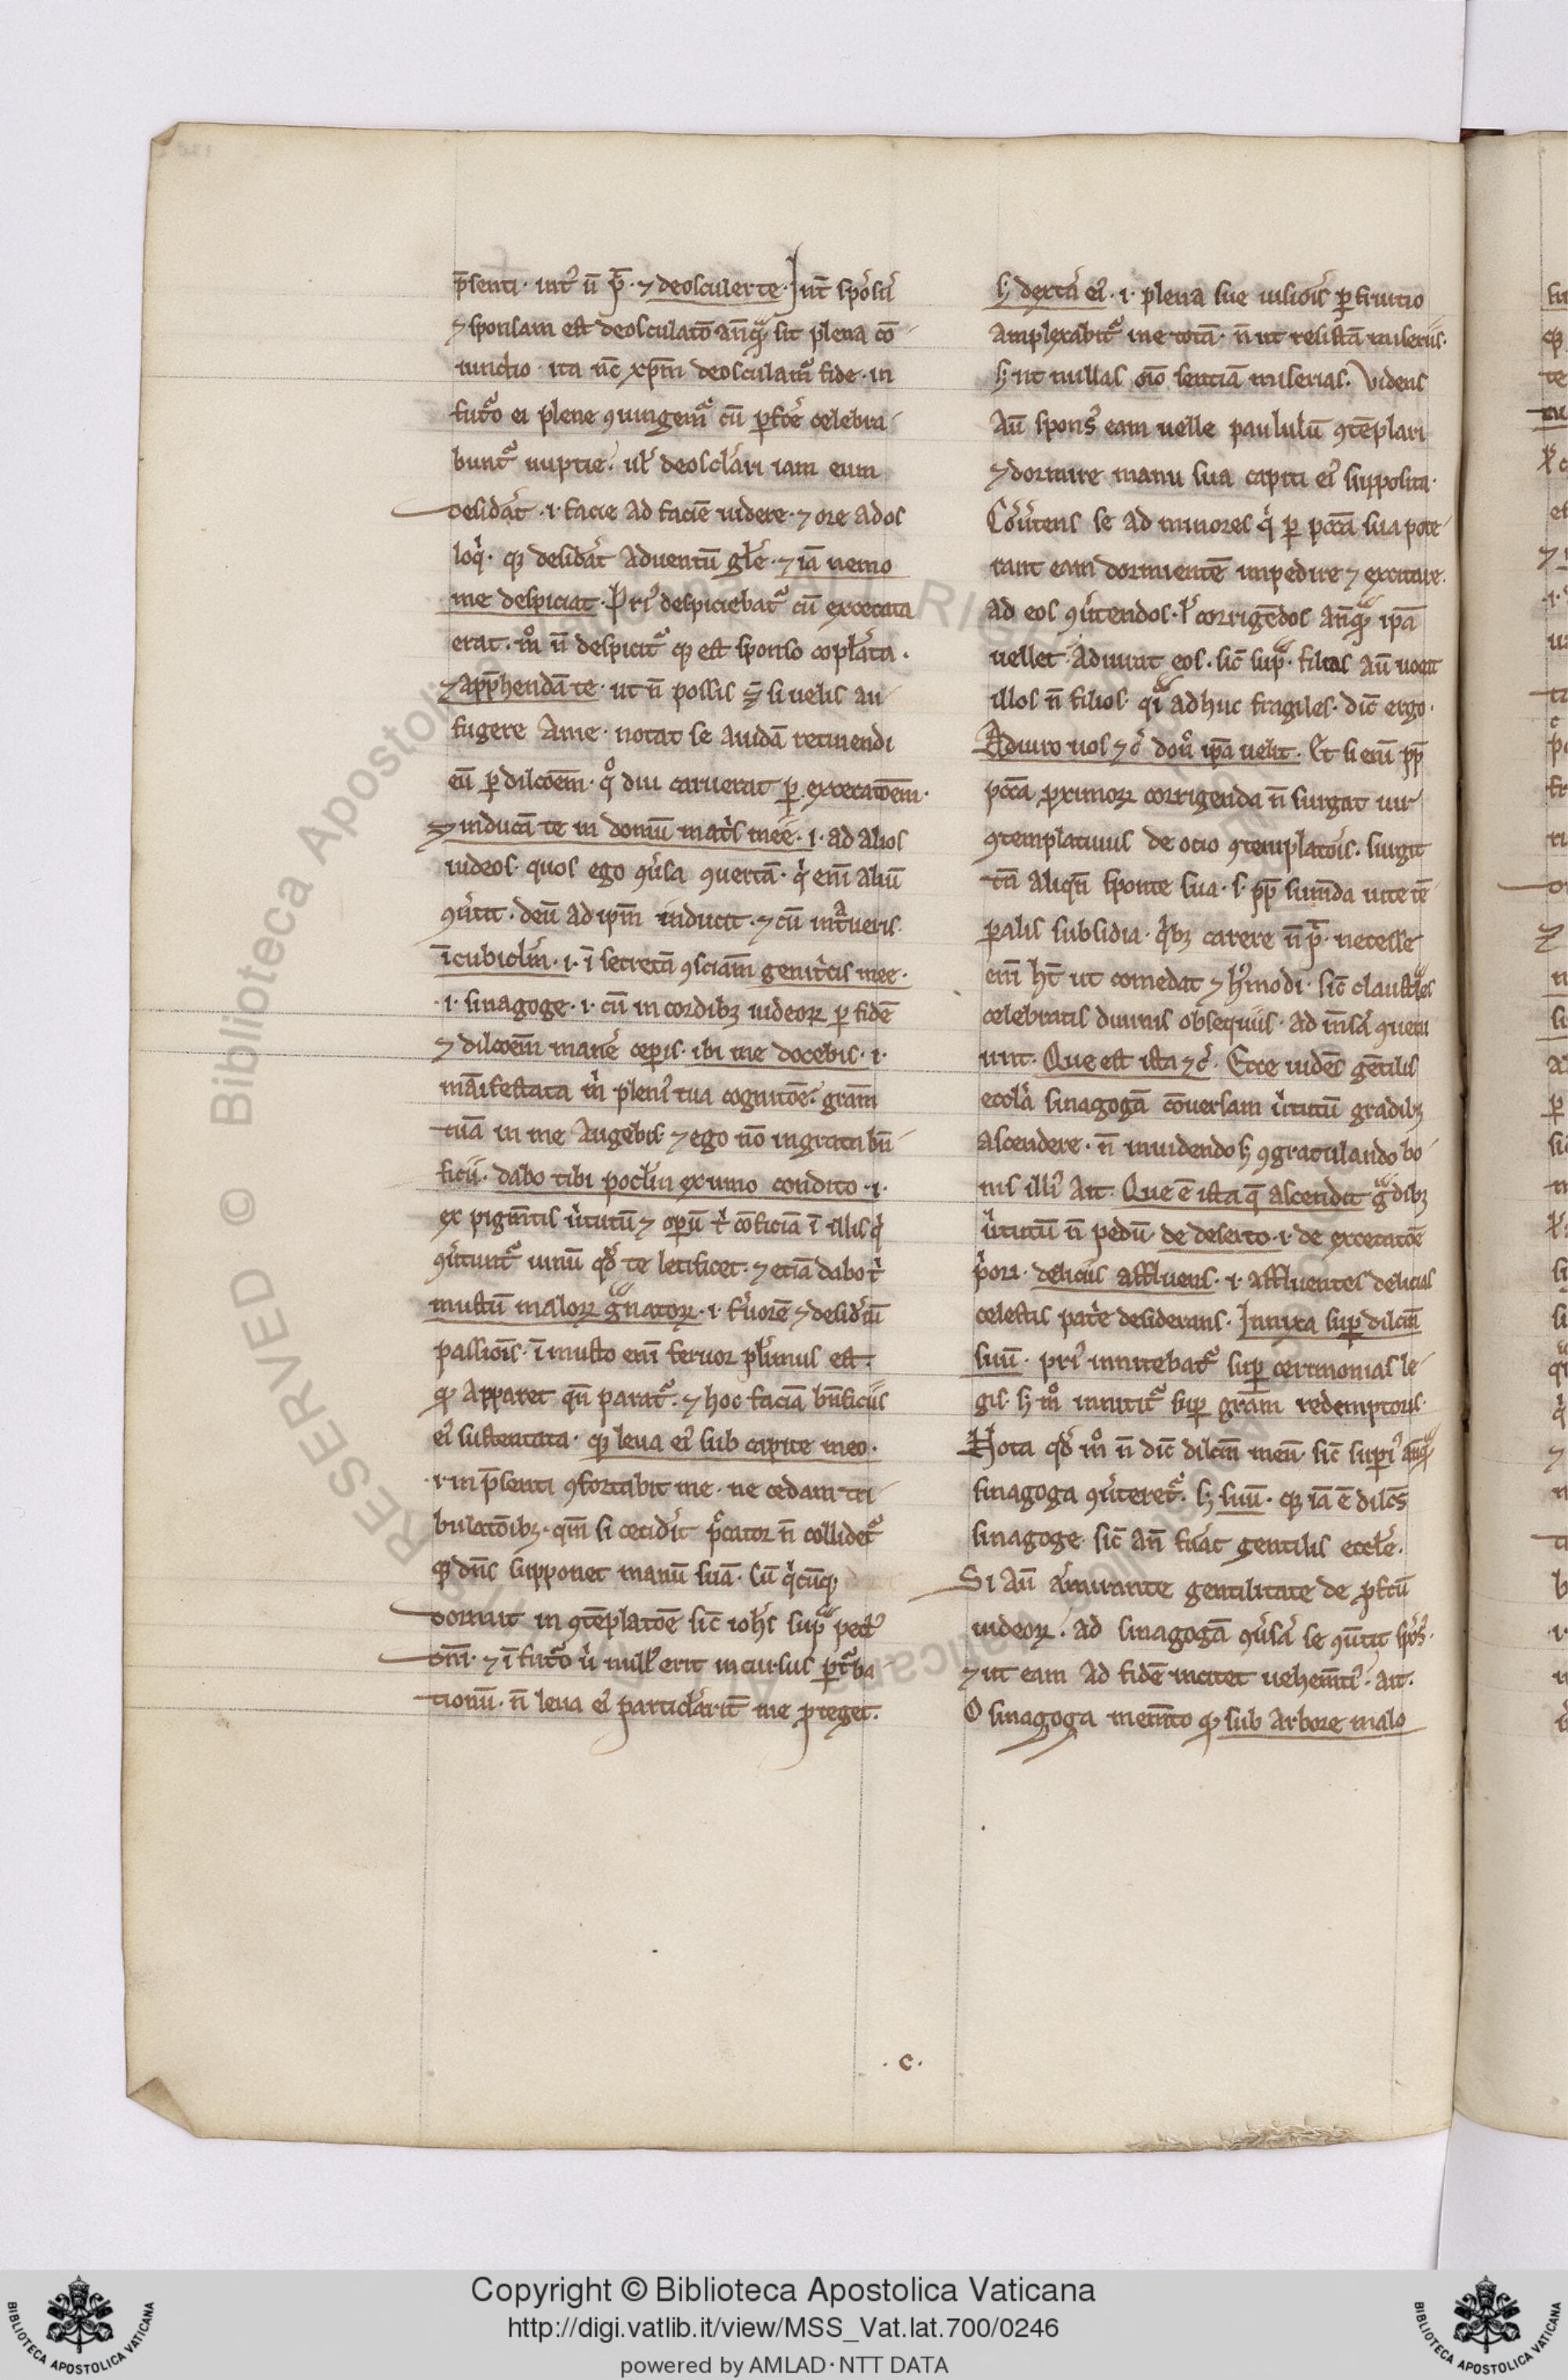 p̄senti. int̾ ū p̄. ⁊ deosculer te. Int̄ sponsū
⁊ sponsam est deosculatō anq̄ sit plena cō
iunctio. ita nc̄ xp̄m deosculam᷑ fide. in
fut᷑o ei plene ꝯiungem᷑ cū ꝑfc̄e celebra
bunt᷑ nuptie. ul̾ deoscl̾ari iam eum
desid̾at .i. facie ad faciē uidere. ⁊ ore ad os
loq̇. qꝫ desid̾at aduentū gl̾e. ⁊ iā nemo
me despiciat. Pri᷒ despiciebat᷑ cū excecata
erat. m̊ n̄ despicit᷑ qꝫ est sponso copl̾ata.
⁊ app̄hendā te. ut n̄ possis si uelis au
fugere a me. notat se auidā retinendi
eū ꝑ dilcōem. q̊ diu caruerat ꝑ excecatōem.
⁊ inducā te in domū mat̾s mee .i. ad alios
iudeos. quos ego ꝯ̾sa ꝯuertā. q̇ eni̅ aliū
ꝯ̾tit. deū ad ip̄m inducit. ⁊ cū int᷑ueris
ī cubicl̾m .i. ī secretā ꝯsciam̄ genit̾cis mee.
.i. sinagoge .i. cū in cordibꝫ iudeoꝝ ꝑ fidē
⁊ dilcōem manē ceꝑis. ibi me docebis .i.
māifestata ṁ pleni᷒ tua cognitōe. gram̄
tuā in me augebis. ⁊ ego nō ingrata bn̄
ficii. dabo tibi pocl̾m ex uino condito .i.
ex pigm̄tis u̇tutū ⁊ oꝑū t̾ cōficiā ī illis q̇
ꝯ̾tunt᷑ uinū qd̾ te letificet. ⁊ etiā dabo t̾
mustū maloꝝ g̾natoꝝ .i. f̾uorē ⁊ desid̾iū
passiōis. ī musto eni̅ feruor pl̾imus est.
qꝫ apparet qn̄ parat᷑. ⁊ hoc faciā bn̄ficiis
ei᷒ sustentata. qꝫ leua ei᷒ sub capite meo.
.i. in p̄senti ꝯfortabit me. ne cedam tri
bulatōibꝫ. qm̄ si cecid̾it p̾cator n̄ collidet᷑
qꝫ dn̄s supponet manū suā. Cū q̇cūqꝫ
dormit in ꝯtēplatōe sic̄ ioh̾s sup̾ pect᷒
dn̄i. ⁊ ī fut᷑o u̇ null᷒ erit incursus ꝑt᷑ba
tionū. n̄ leua ei᷒ particl̾arit̄ me ꝓteget.
s; dext̾a ei᷒ .i. plena sue uisiōis ꝑfruitio
amplexabit᷑ me totā. n̄ ut relistā miseriis.
s; ut nullas oīo sentiā miserias. Videns
aū spons᷒ eam uelle paululū ꝯtēplari
⁊ dormire manu sua capiti ei᷒ supposita.
Cōu̾tens se ad minores q̇ ꝑ pccā sua pote
rant eam dormientē impedire ⁊ excitare.
ad eos ꝯ̾tendos. ul̾ corrigēdos anq̄ꝫ ip̄a
uellet. adiurat eos. sic̄ sup̾. filias aū uocat
illos n̄ filios. qi̾ adhuc fragiles. dic̄ ergo.
Adiuro uos ⁊c̾ don̊ ip̄a uelit. Et si eni̅ pp̄
pccā ꝓximoꝝ corrigenda n̄ surgat uir
ꝯtemplatiuus de ocio ꝯtemplatōis. surgit
tn̄ aliqn̄ sponte sua .s. pp̄ sumēda uite tē
ꝑalis subsidia. q̇bꝫ carere n̄ p̄. necesse
eni̅ ht̄ ut comedat ⁊ h᷒modi. sic̄ claust᷑les
celebratis diuinis obsequiis. ad m̄sā ꝯueni
unt. Que est ista ⁊c̾. Ecce uidēs gētilis
eccl̾a sinagogā cōuersam u̇tutū gradibꝫ
ascendere. n̄ inuidendo s; ꝯgratulando bo
nis illi᷒ ait. Que ē ista q̄ ascendit g᷑dibꝫ
u̇tutū n̄ pedū. de deserto .i. de excecatōe
p̾ori. deliciis affluens .i. affluentes delicias
celestis pat̾e desiderans. Innixa suꝑ dilcm̄
suū. pri᷒ innitebat᷑ suꝑ cerimonias le
gis. s; m̊ innitit᷑ suꝑ gram̄ redemptoris.
Nota qd̾ m̊ n̄ dic̄ dilcm̄ meū. sic̄ superi᷒ anq̄ꝫ
sinagoga ꝯ̾teret᷑. s; suū. qꝫ iā ē dilcs̄
sinagoge. sic̄ an̄ fu̾at gentilis eccl̾e.
Si aū a᷒mirante gentilitate de ꝓfcū
iudeoꝝ. ad sinagogā ꝯ̾sā se ꝯ̾tit spōs᷒.
⁊ ut eam ad fidē incitet uehem̄ti᷒. ait.
O sinagoga mem̄to qꝫ sub arbore malo
.c.
Copyright © Biblioteca Apostolica Vaticana
http://digi.vatlib.it/view/MSS_Vat.lat.700/0246
powered by AMLAD·NTT DATA